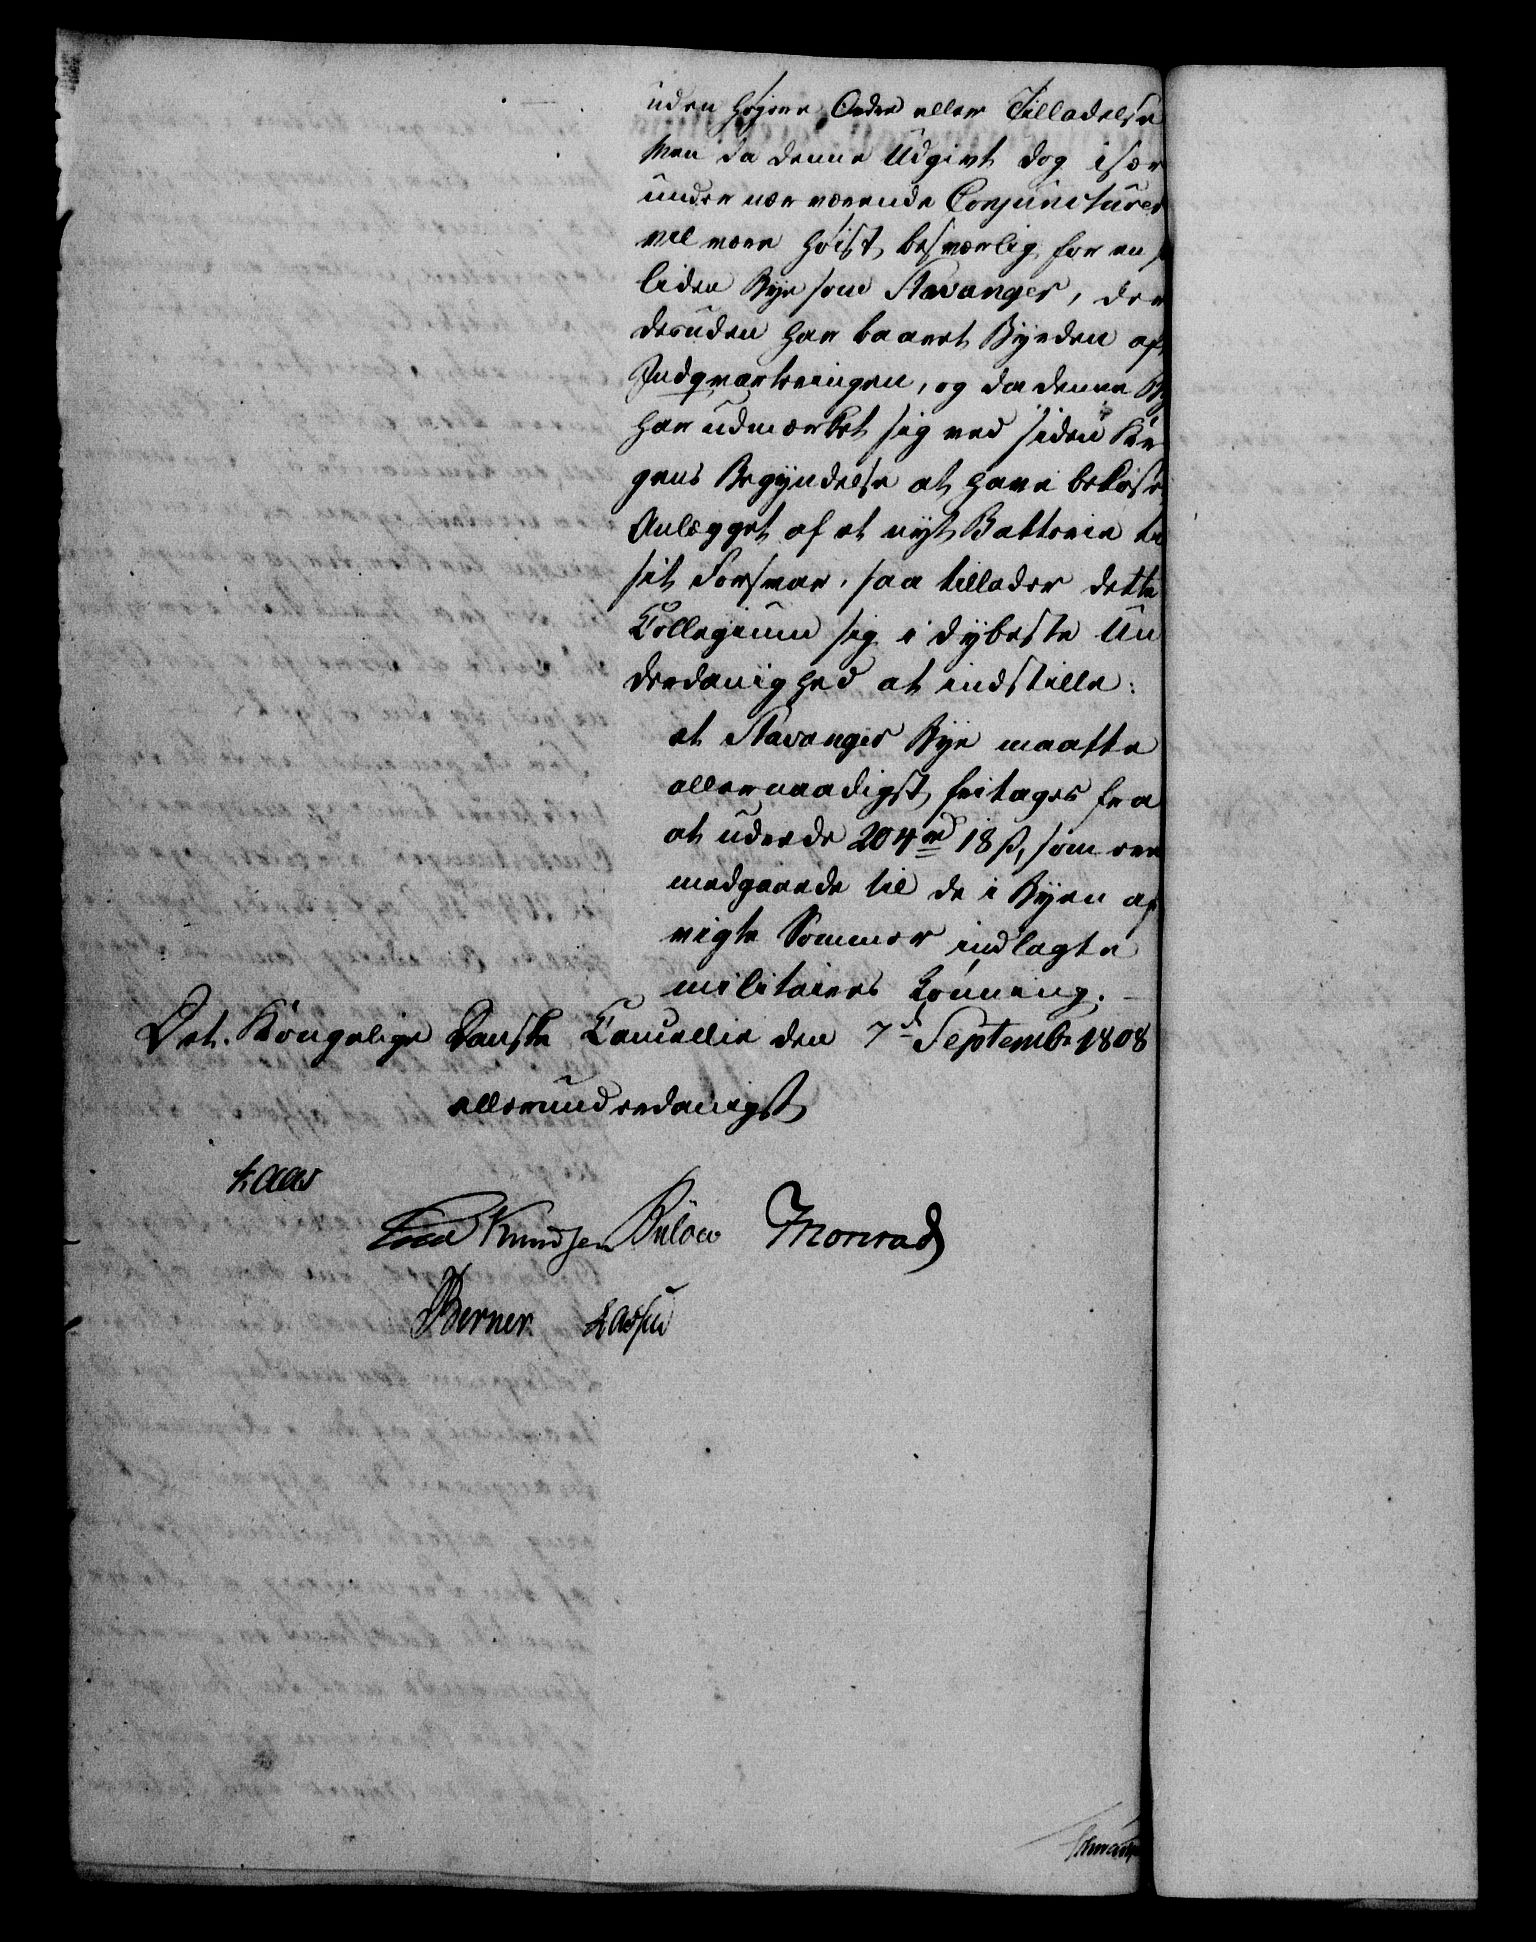 uden højere Ordre eller Tilladelse
Men da denne Udgivt dog især
under nærværende Conjuncturer
vil være høist besværlig for en
liden Bye som Stavanger, der
desuden har baaret Byrden af
Indqvarteringen, og da denne By
har udmærket sig ved siden Kri
gens Begyndelse at have bekost
Anlægget af et nyt Batterie til
sit Forsvar, saa tillader dette
Collegium sig i dybeste Un
derdanighed at indstille:
at Stavanger Bye maatte
allernaadigst fritages fra
at udrede 204 rd 18 ß, som ere
medgaaede til de i Byen af
vigte Sommer indlagte
militaires Lønning.
Det Kongelige Danske Cancellie den 7d Septembr 1808
allerunderdanigst
Kaas
Knudsen Bülow Monrad
Berner Lassen